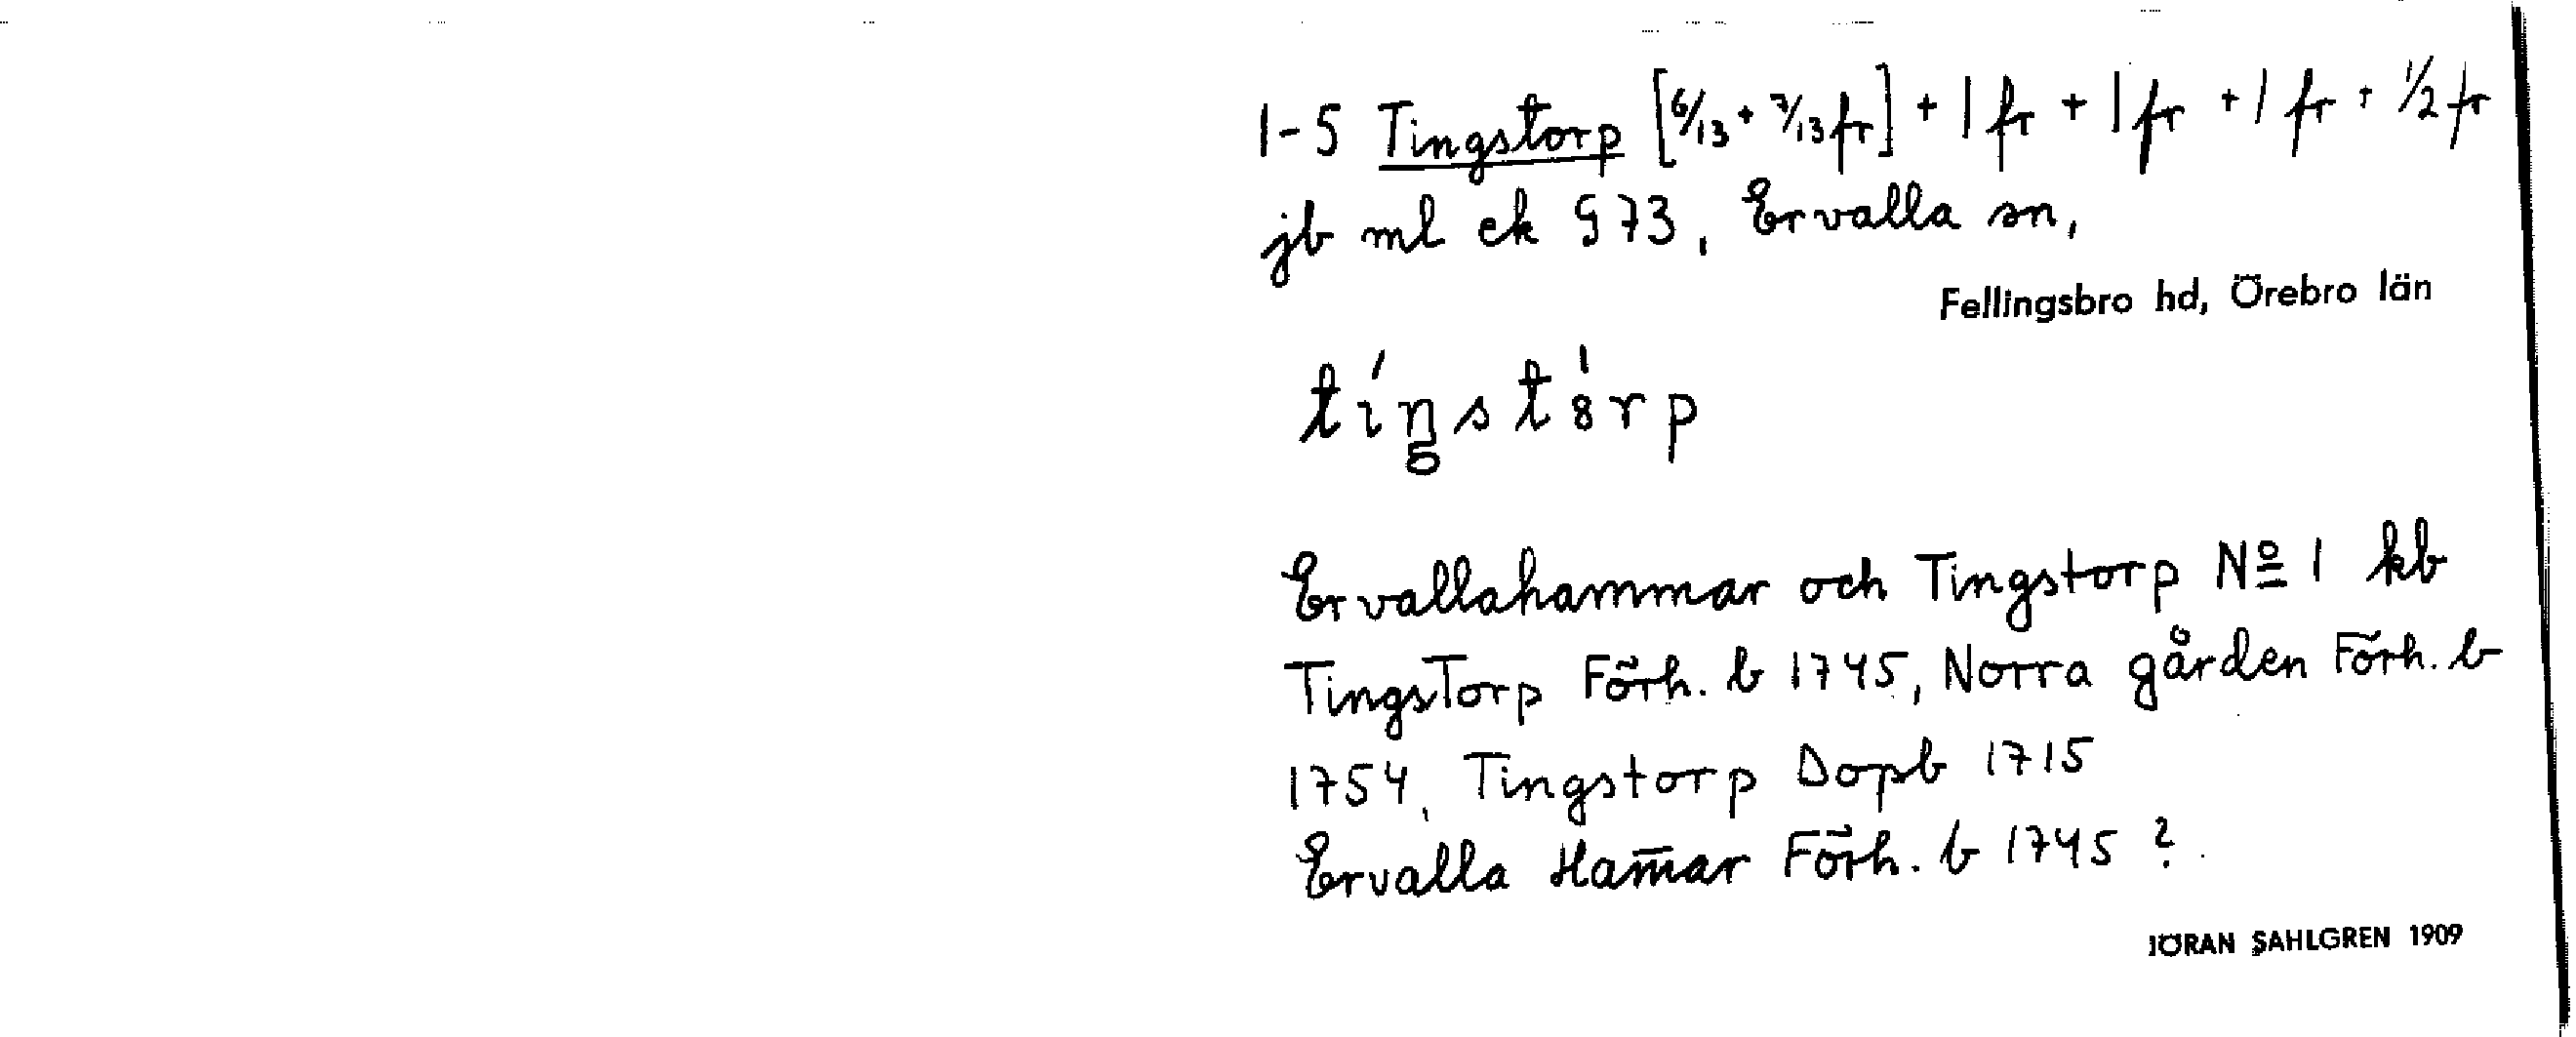 1-5 Tingstorp [6/13 + 7/13 fr] + 1 fr + 1 fr + 1 fr + 1/2 fr
jb ml ek § 73, Ervalla sn,
Fellingsbro hd, Örebro län
tíŋstȯ́rp
Ervallahammar och Tingstorp Nº 1 kb
TingsTorp Förh. b 1745, Norra gården Förh. b
1754, Tingstorp Dopb 1715
Ervalla Ham̄ar Förh. b 1745 ?
JÖRAN SAHLGREN 1909